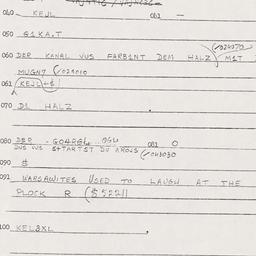 040 KEJL 041 —
050 G1KA.T
(✓024070
060 DER KANAL VUS FARBINT DEM HALZ MIT
MUGN? (✓024010
061 (KEJL+$)
070 D1 HALZ .
080 DER - GO4RGL OGU 081 0
DUS VUS S+TARTST DU AROJS (✓043030
090 #
091 WARSAWITES USED TO LAUGH AT THE
PLOCK R (§ 52211
100 KEL3XL .